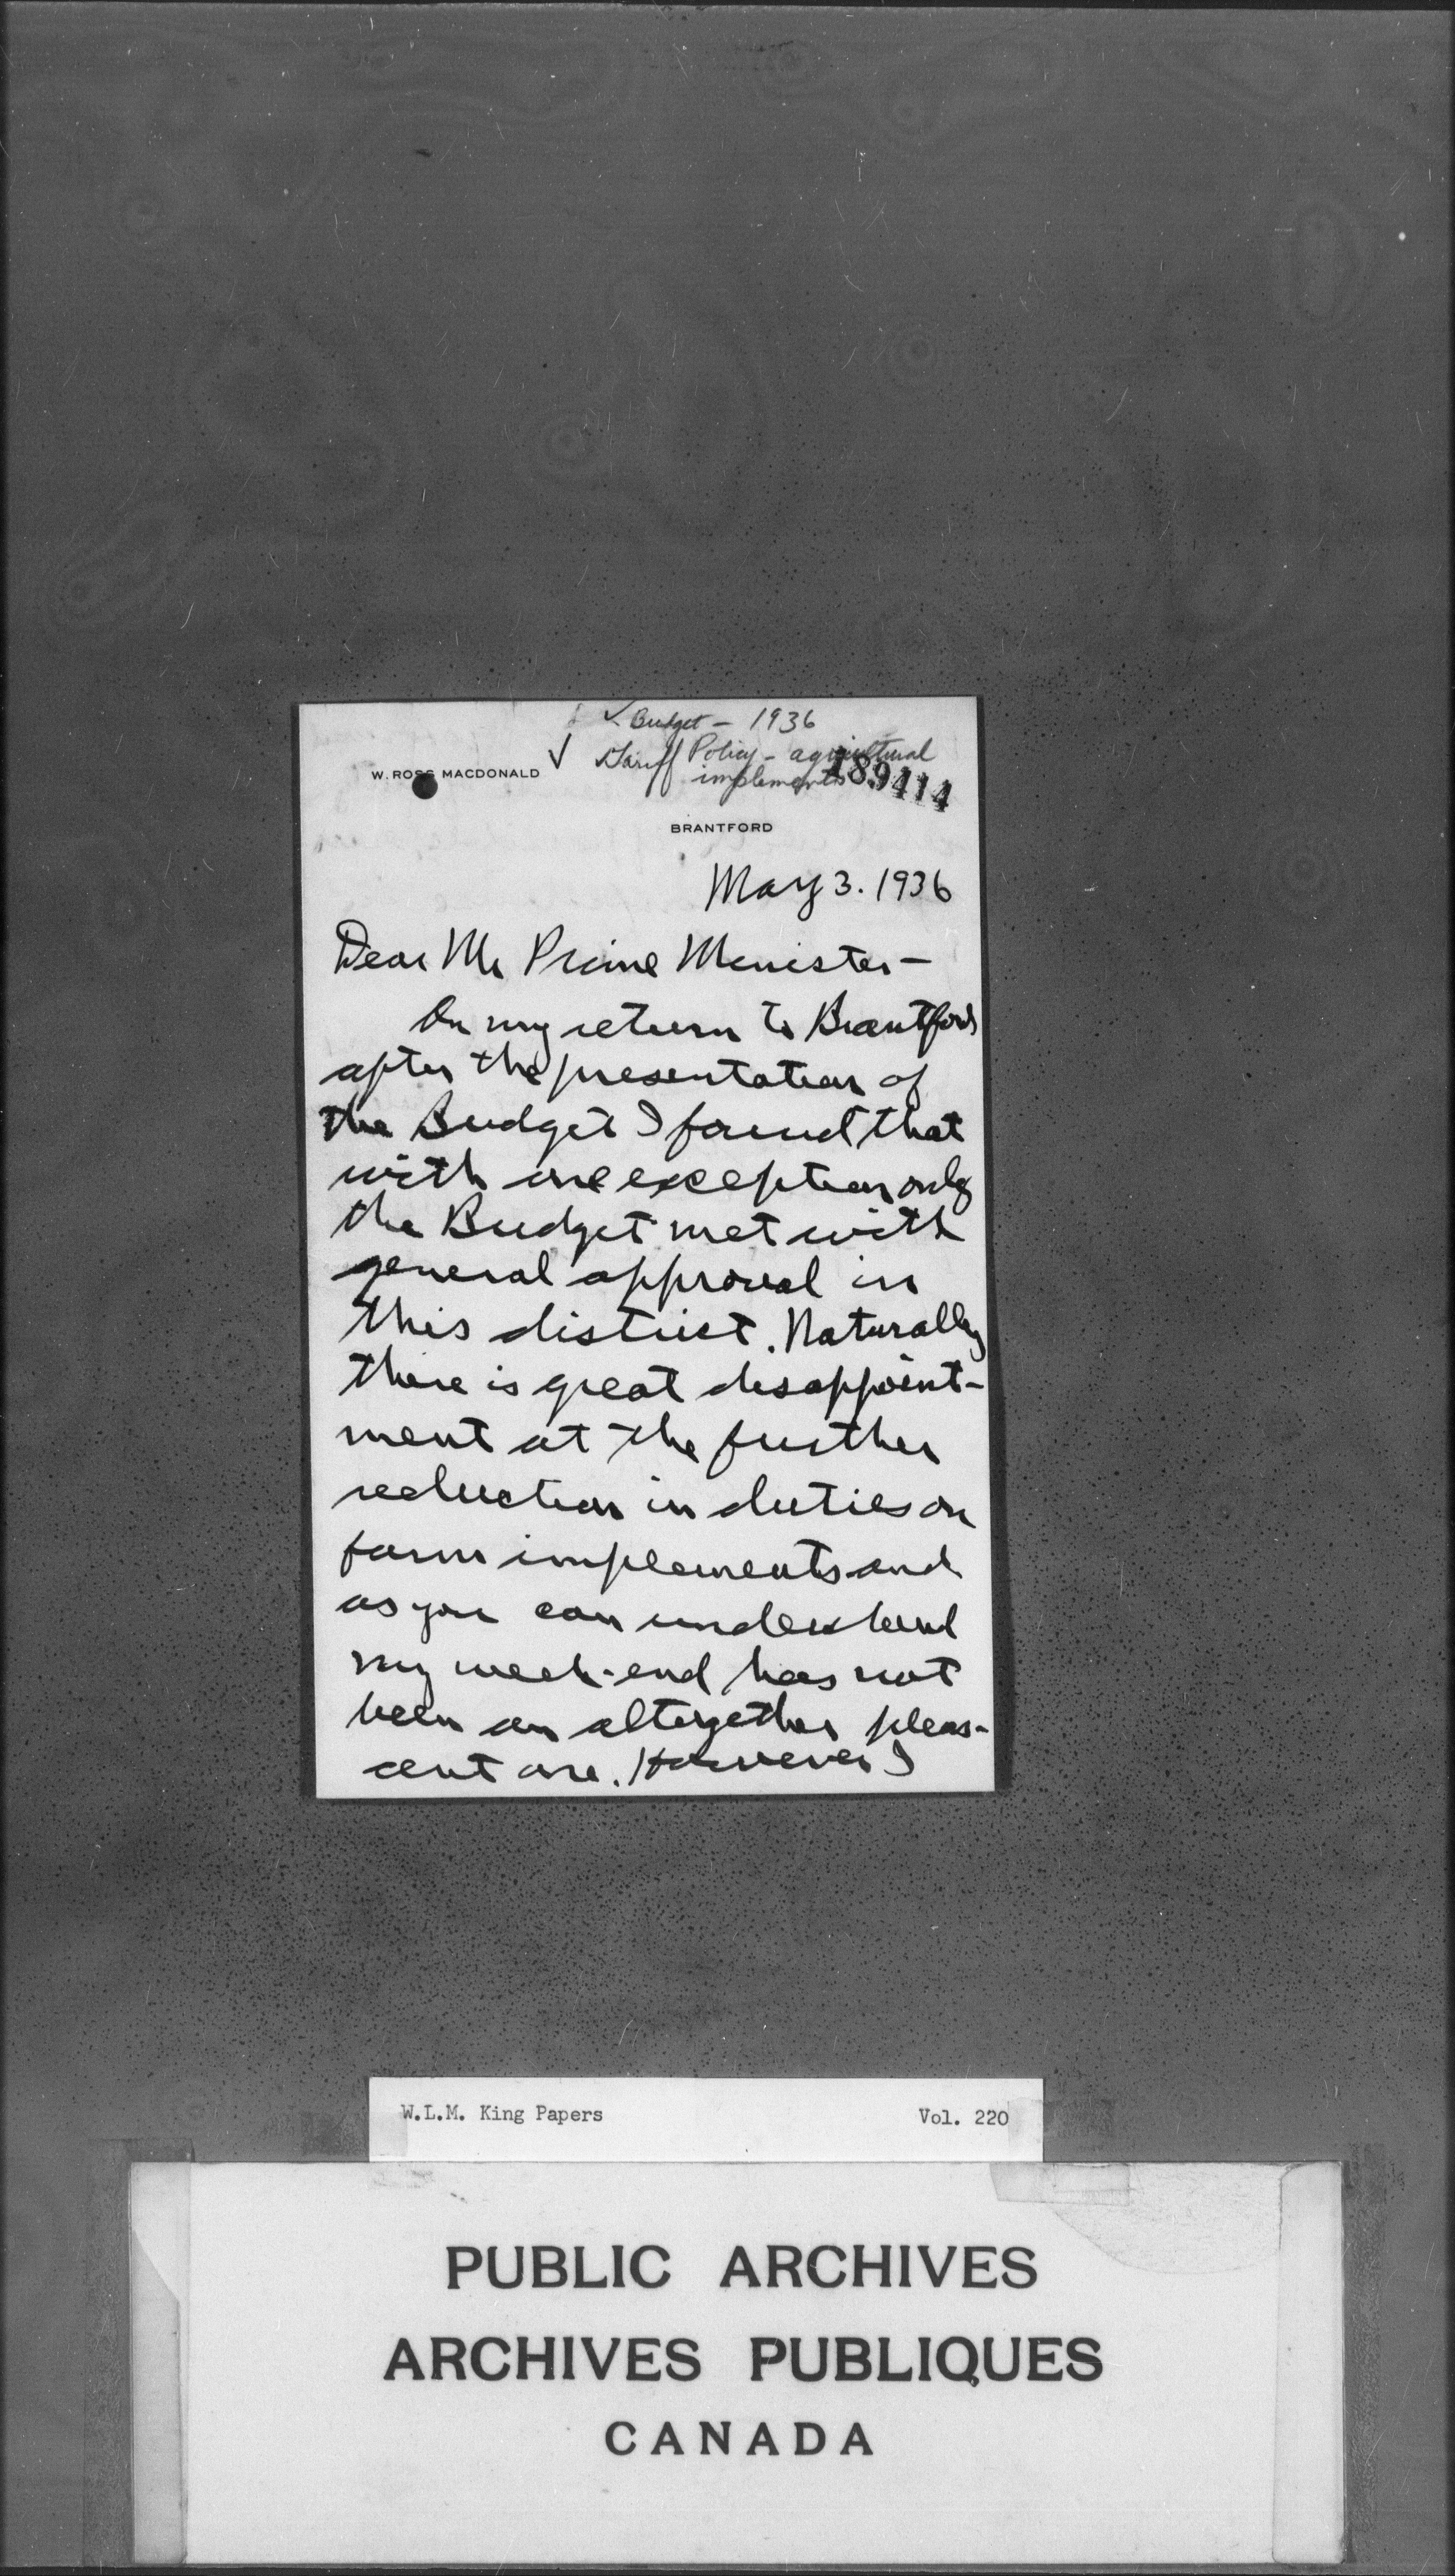 ✓ Budget – 1936
✓ Tariff Policy – agricultural
implements
189414
W. ROSS MACDONALD
BRANTFORD
May 3. 1936
Dear Mr Prime Minister –
On my return to Brantford
after the presentation of
the Budget I found that
with one exception only
the Budget met with
general approval in
this district. Naturally
there is great disappoint-
ment at the further
reduction in duties on
farm implements and
as you can understand
my week-end has not
been an altogether pleas-
ant one. However I
W.L.M. King Papers Vol. 220
PUBLIC ARCHIVES
ARCHIVES PUBLIQUES
CANADA